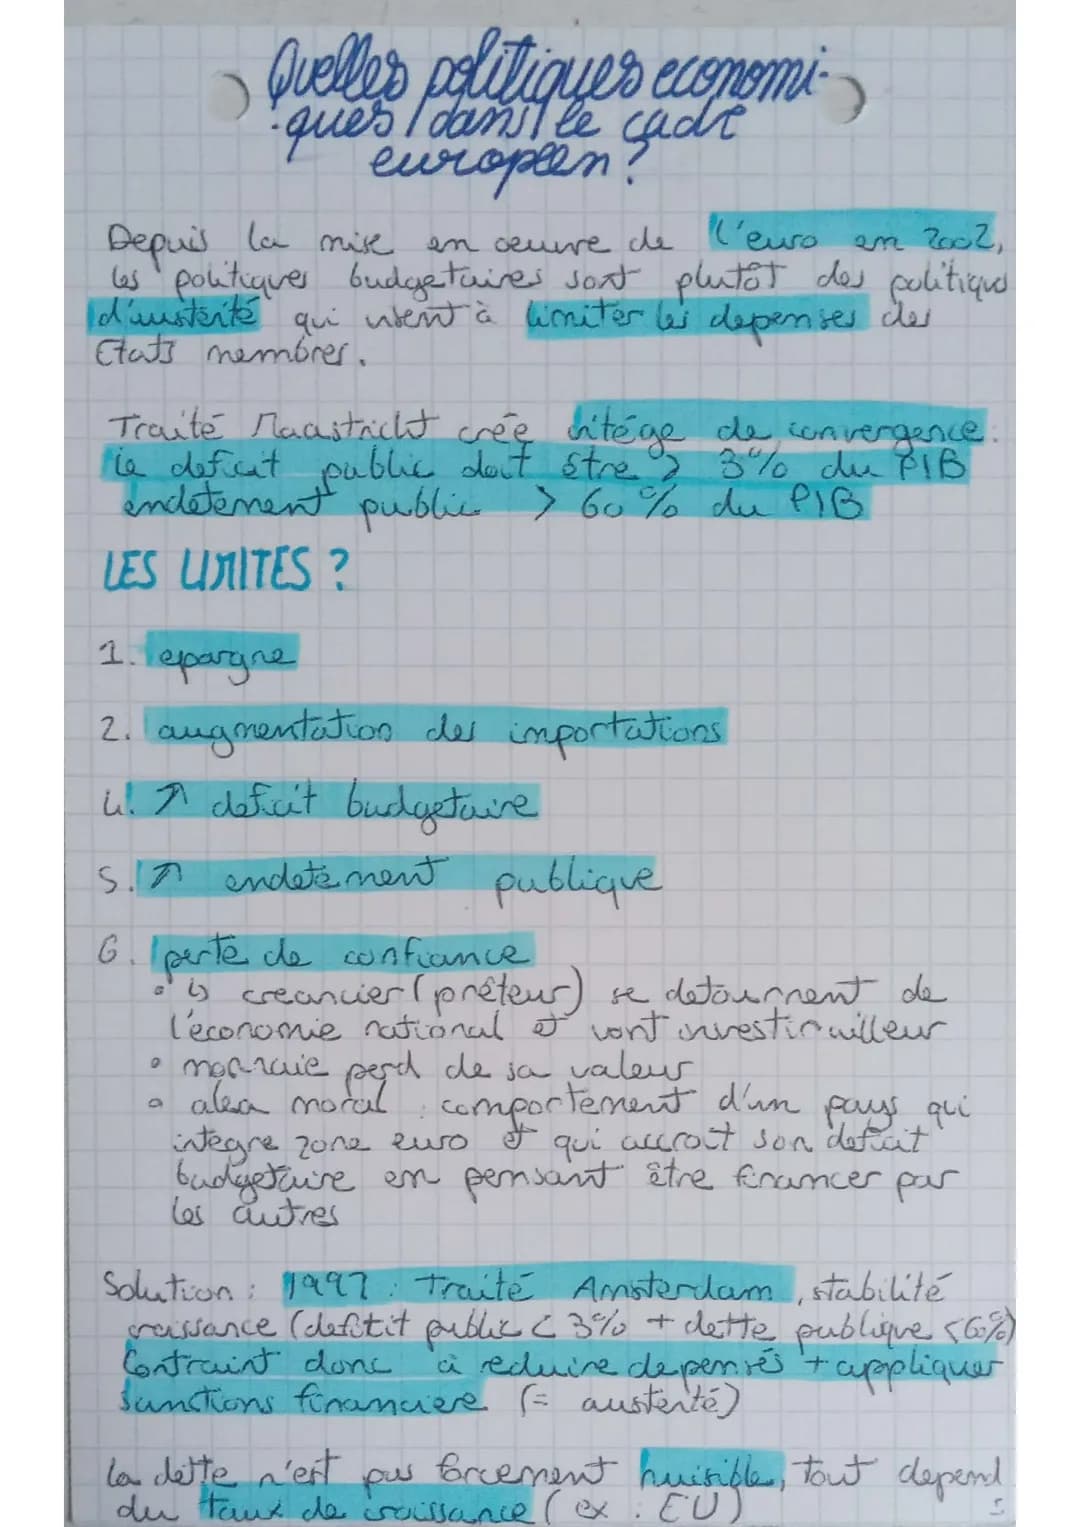 Quelles politiques economi-
-ques dans le cadre
europeen ?
Depuis la mise en oeuvre de l'euro en 2002,
les politiques budgetaires sont plutôt des politiques
d'austérité qui visent à limiter les depenses des
Etats membres.
Traité Maastricht crée critége de convergence:
le deficit public doit être > 3% du PIB
endetement public > 60% du PIB
LES LIMITES ?
1. epargne
2. augmentation des importations
4. ↗ deficit budgetaire
5. ↗ endetement publique
6. perte de confiance
• ↳ creancier (prêteur) se detournent de
l'économie national et vont investir ailleur
• monnaie perd de sa valeur
• alea moral : comportement d'un pays qui
integre zone euro et qui accroit son deficit
budgetaire en pensant être financer par
les autres
Solution : 1997 : Traité Amsterdam, stabilité
croissance (defitit public < 3% + dette publique <60%)
Contraint donc à reduire depenses + appliquer
sanctions financiere (= austerité)
la dette n'est pas forcement nuisible, tout depend
du taux de croissance ( ex : EU)